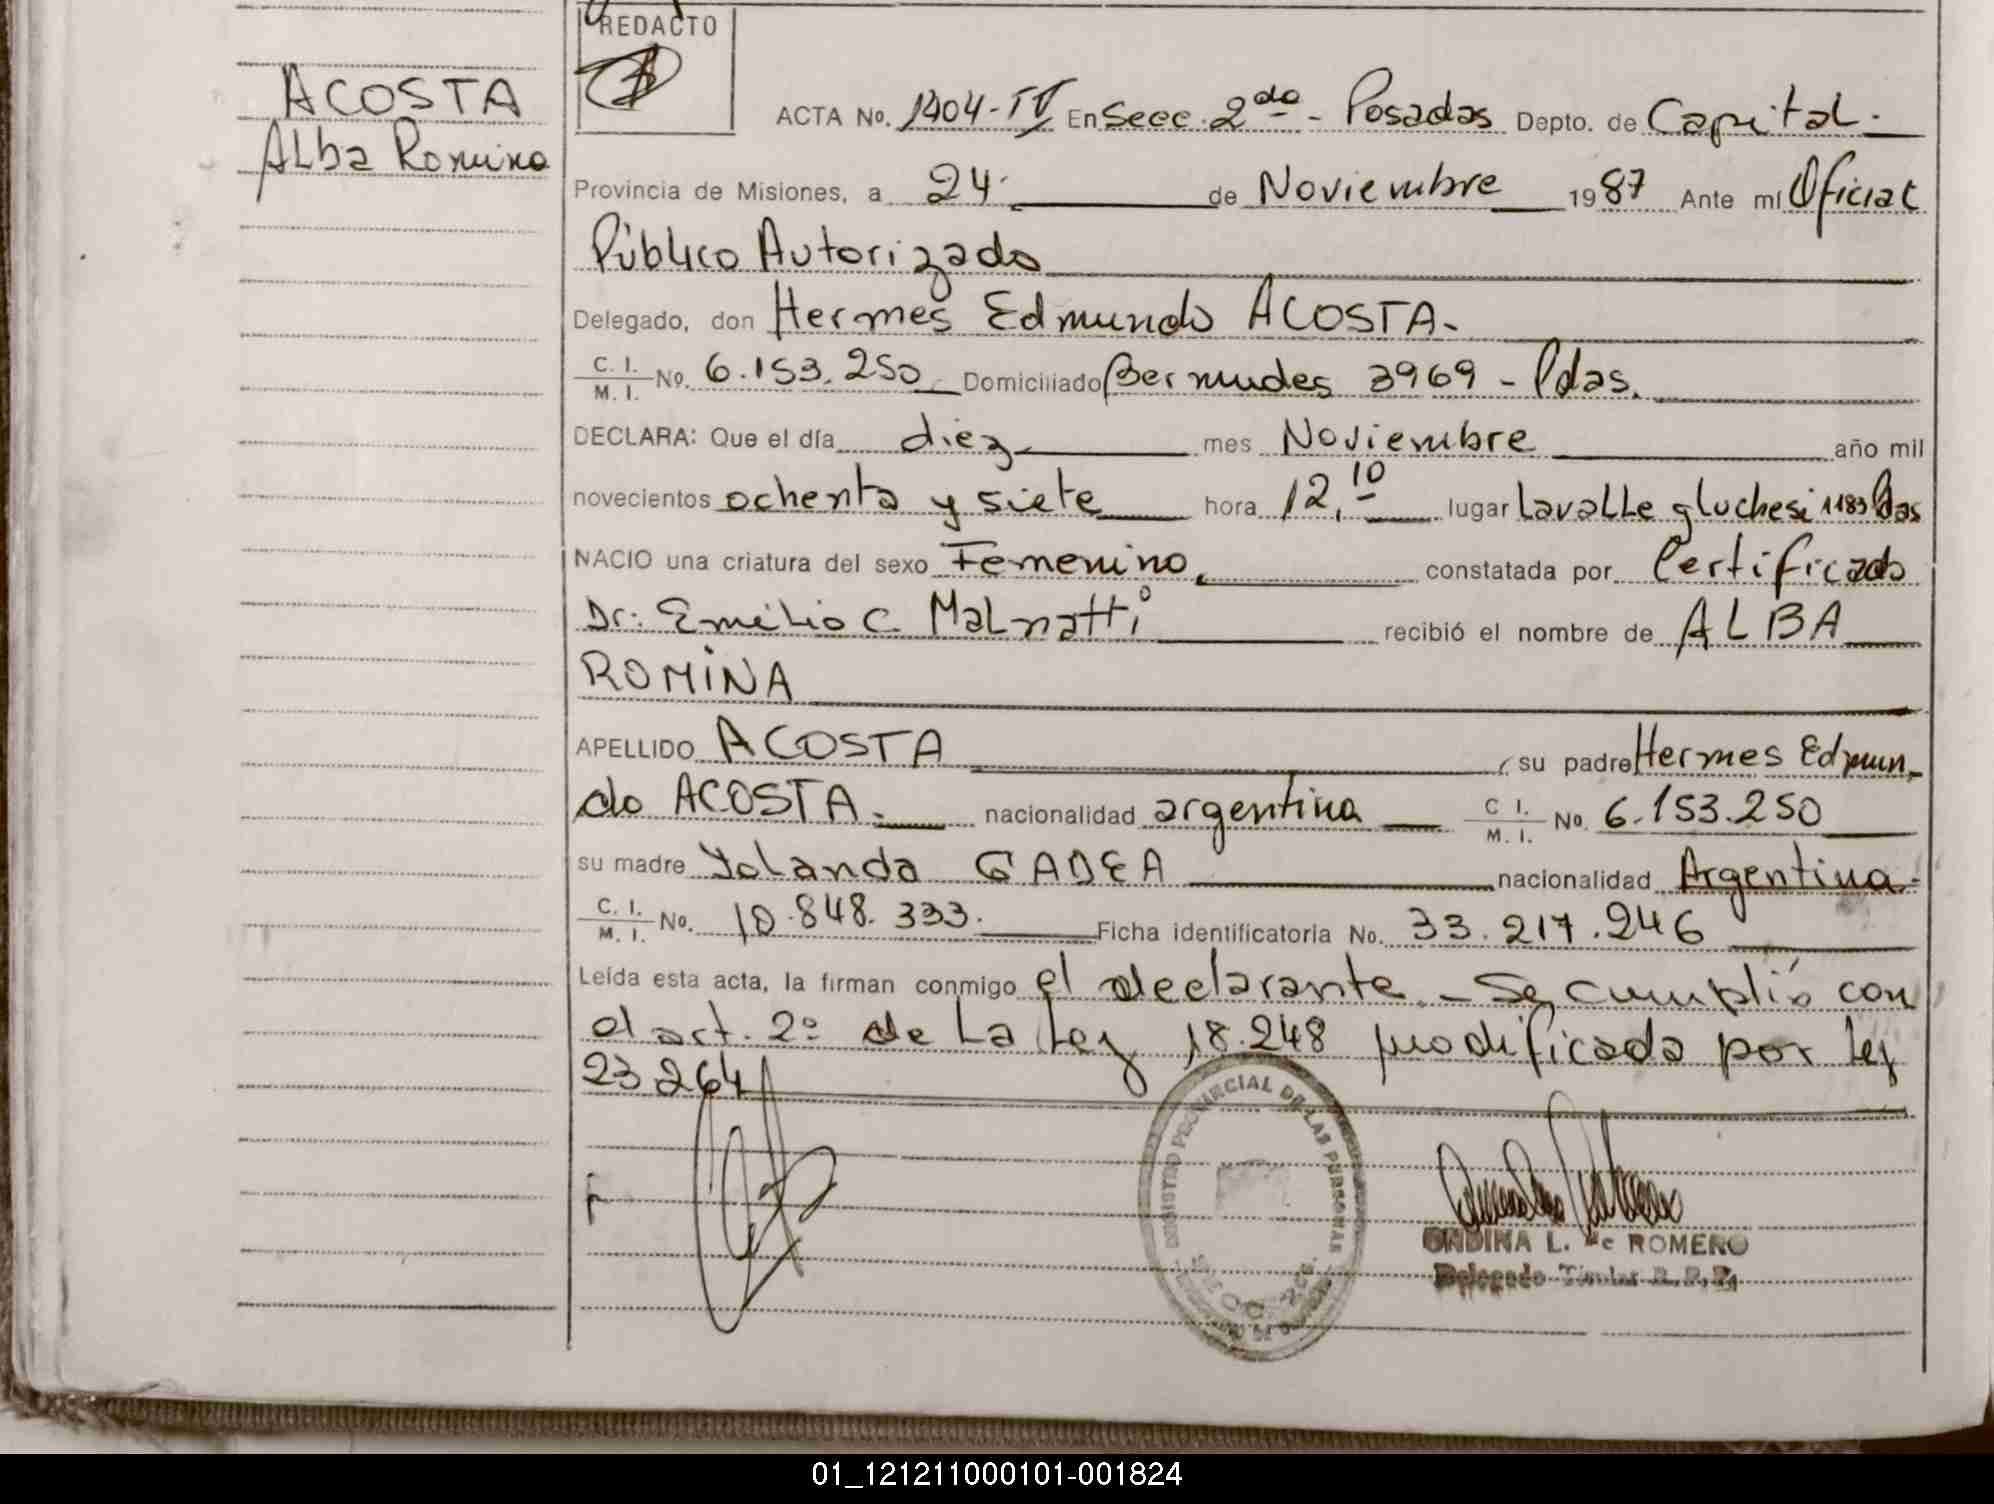 REDACTO
ACOSTA
Alba Romina
ACTA No. 1404-IV En Secc. 2da - Posadas Depto. de Capital.
Provincia de Misiones, a 24 de Noviembre 1987 Ante mí Oficial
Público Autorizado
Delegado, don Hermes Edmundo ACOSTA.
C. I. M. I. No. 6.153.250 Domiciliado Bermudes 3969 - Pdas.
DECLARA: Que el día diez mes Noviembre año mil
novecientos ochenta y siete hora 12,10 lugar Lavalle y Luchesi 1183 Pdas
NACIO una criatura del sexo Femenino, constatada por Certificado
Dr: Emilio C. Malnatti recibió el nombre de ALBA
ROMINA
APELLIDO ACOSTA, su padre Hermes Edmun-
do ACOSTA. nacionalidad argentina C I. M. I. No. 6.153.250
su madre Yolanda GADEA nacionalidad Argentina.
C. I. M. I. No. 10.848.333. Ficha identificatoria No. 33.217.246
Leída esta acta, la firman conmigo el declarante. - Se cumplió con
el art. 2º de la Ley 18.248 modificada por Ley
23264
REGISTRO PROVINCIAL DE LAS PERSONAS
ONDINA L. de ROMERO
Delegado Titular R. P. P.
01_121211000101-001824